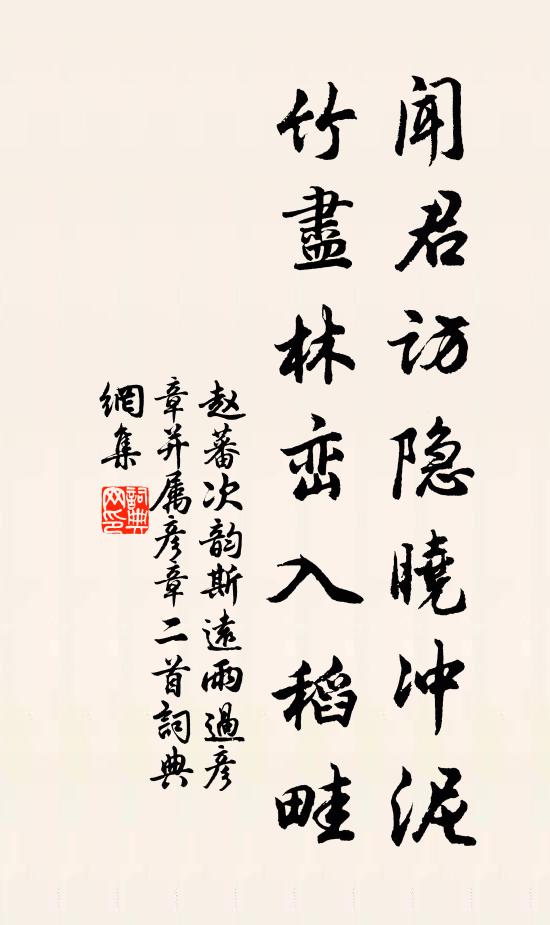 闻君访隐曉冲泥
竹盡林峦入稻畦
赵蕃次韵斯遠雨過彦
章并属彦章二首詞典
網集
詞典
网印